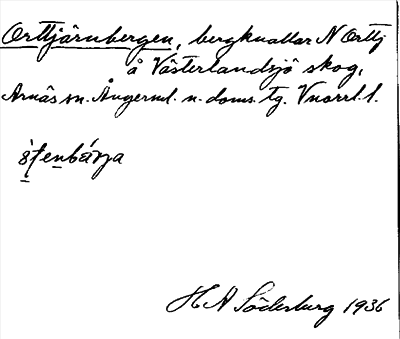 Orttjärnbergen, bergknallar N Orttj
å Västerlandsjö skog,
Arnäs sn. Ångerml. n. doms. tg. Vnorrl. l.
H A Söderburg 1936